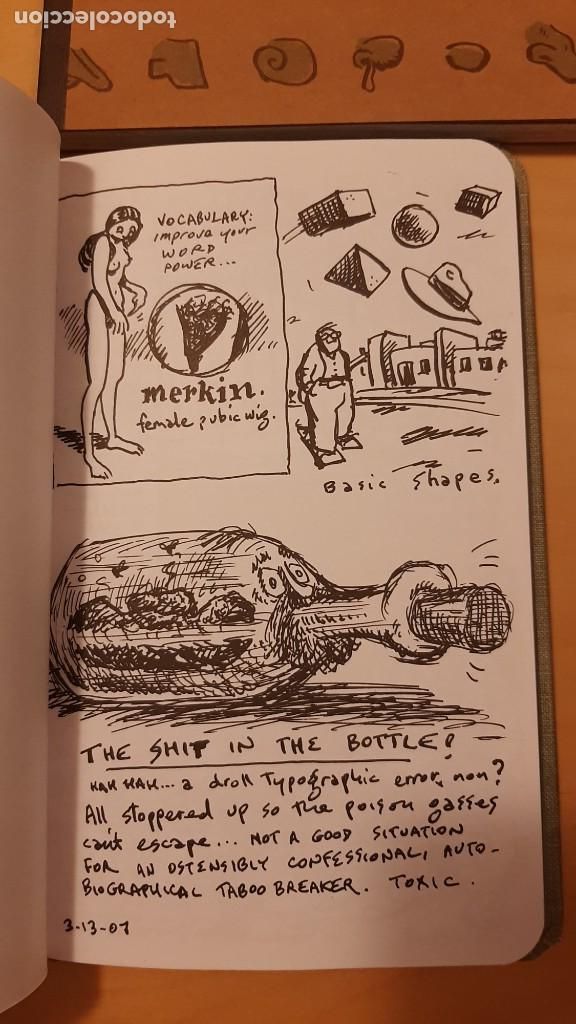 todocoleccion
VOCABULARY:
improve your
WORD
POWER...
merkin.
female pubic wig.
Basic Shapes.
THE SHIT IN THE BOTTLE!
HAH HAH... a droll typographic error, non?
All stoppered up so the poison gasses
can't escape... NOT A GOOD SITUATION
FOR AN OSTENSIBLY CONFESSIONAL, AUTO-
BIOGRAPHICAL TABOO BREAKER. TOXIC.
3-13-07